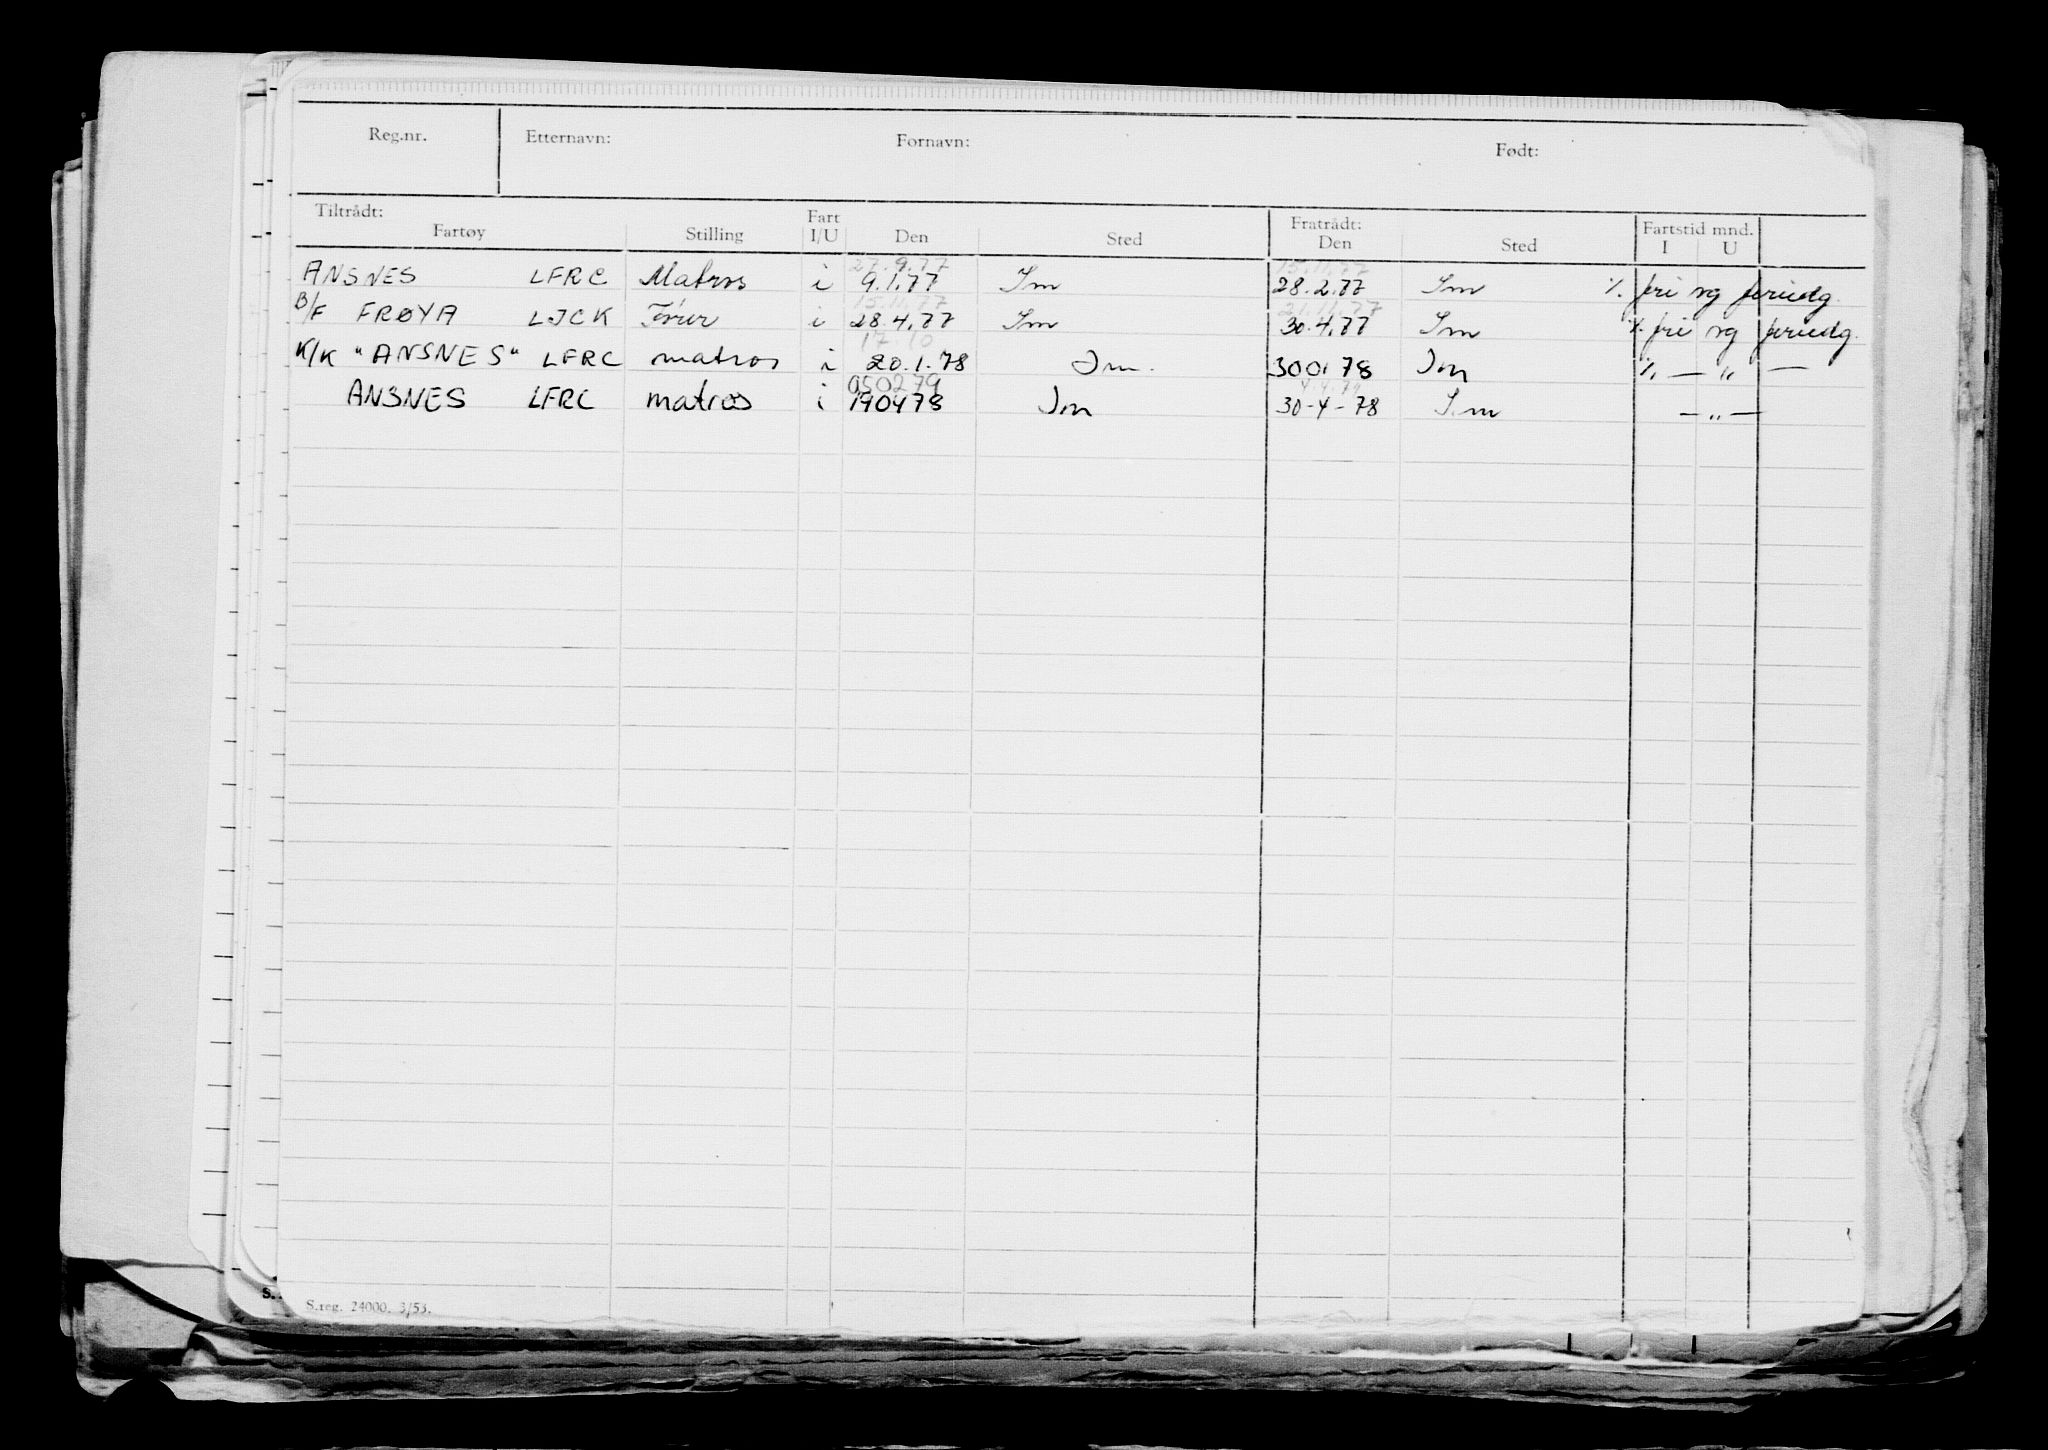 Reg.nr. Etternavn: Fornavn: Født:
Tiltrådt: Fart Fratrådt: Fartstid mnd.
Fartøy Stilling I/U Den Sted Den Sted I U
27.9.77 15.11.77
ANSNES LFRC Matros i 9.1.77 Im 28.2.77 Im % fri og feriedg.
15.11.77 21.11.77
B/F FRØYA LJCK i 28.4.77 Im 30.4.77 Im % fri og feriedg.
17.10
K/K "ANSNES" LFRC matros i 20.1.78 Im. 300178 Im % — " —
050279 4.4.79
ANSNES LFRC matros i 190478 Im 30-4-78 Im — " —
S.reg. 24000. 3/53.
S.